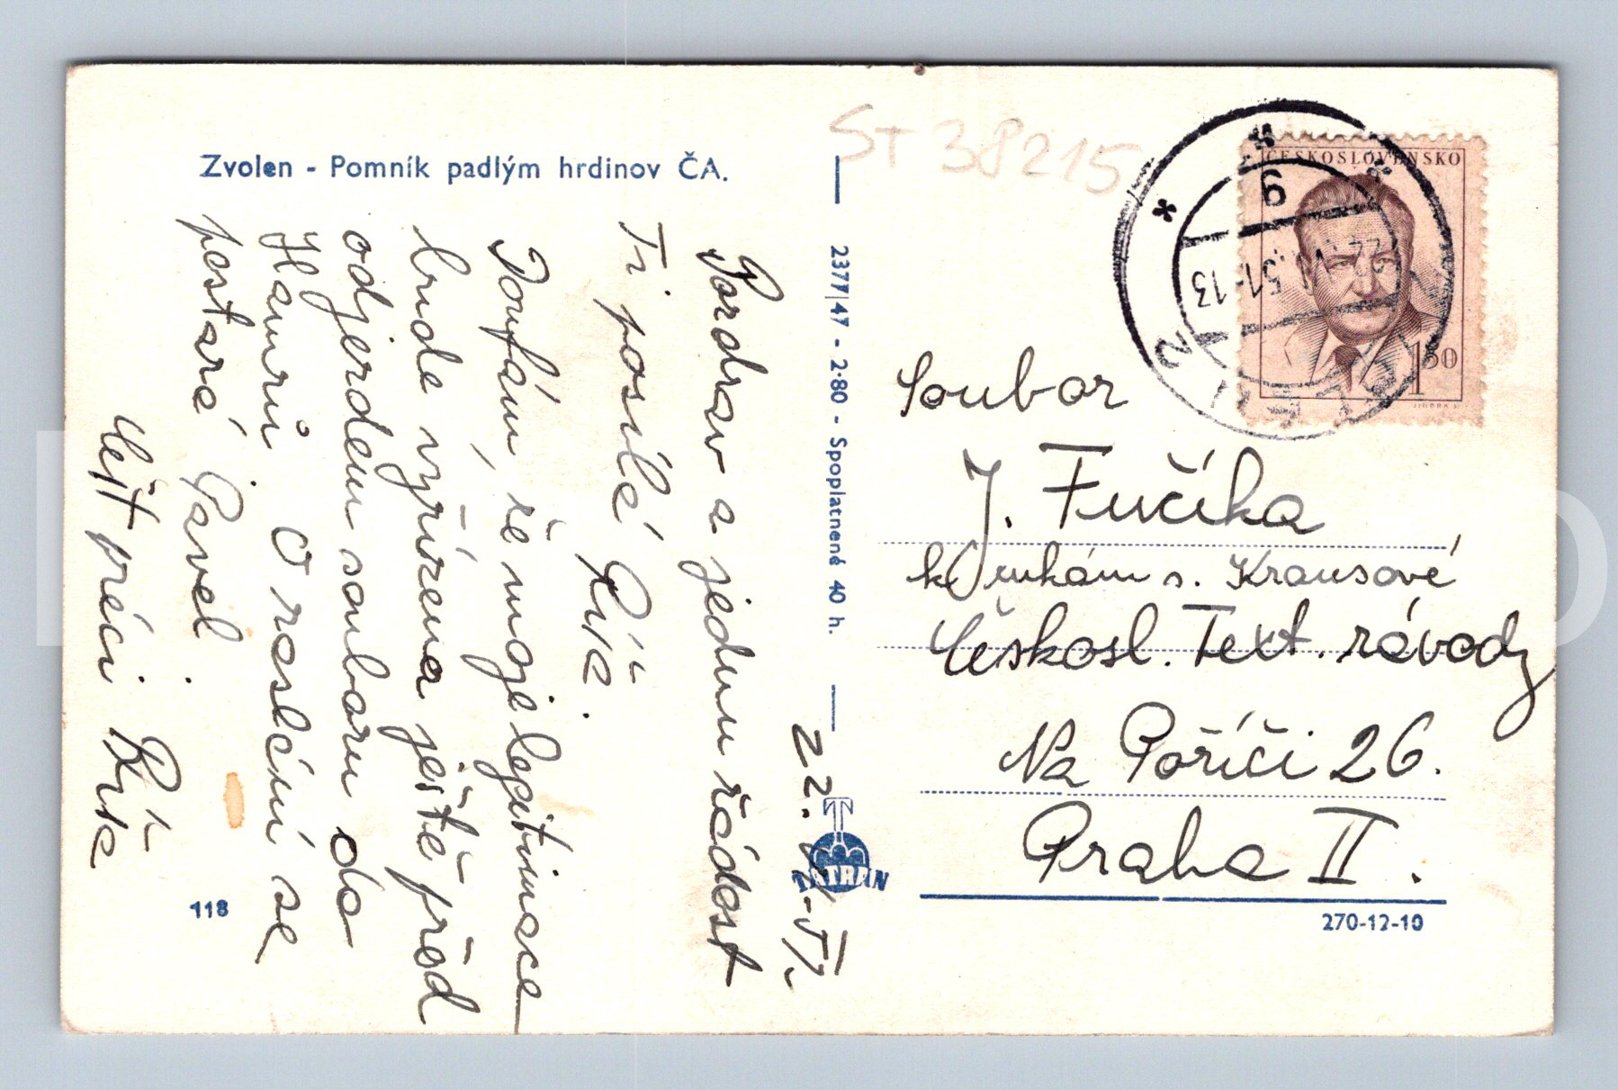 Zvolen - Pomník padlým hrdinov ČA.
ST 38215
22.
Pozdrav a jednu žádost
Ti posílá
Doufám, že moje legitimace
bude vyřízena ještě před
odjezdem souboru do
O zaslání se
postará Pavel.
Čest práci
118
2377/47 - 2·80 - Spoplatnené 40 h.
TATRAN
ČESKOSLOVENSKO
1 50
6
51-13
2
Soubor
J. Fučíka
k rukám s. Krausové
Českosl. Text. závody
Na Poříčí 26.
Praha II.
270-12-10